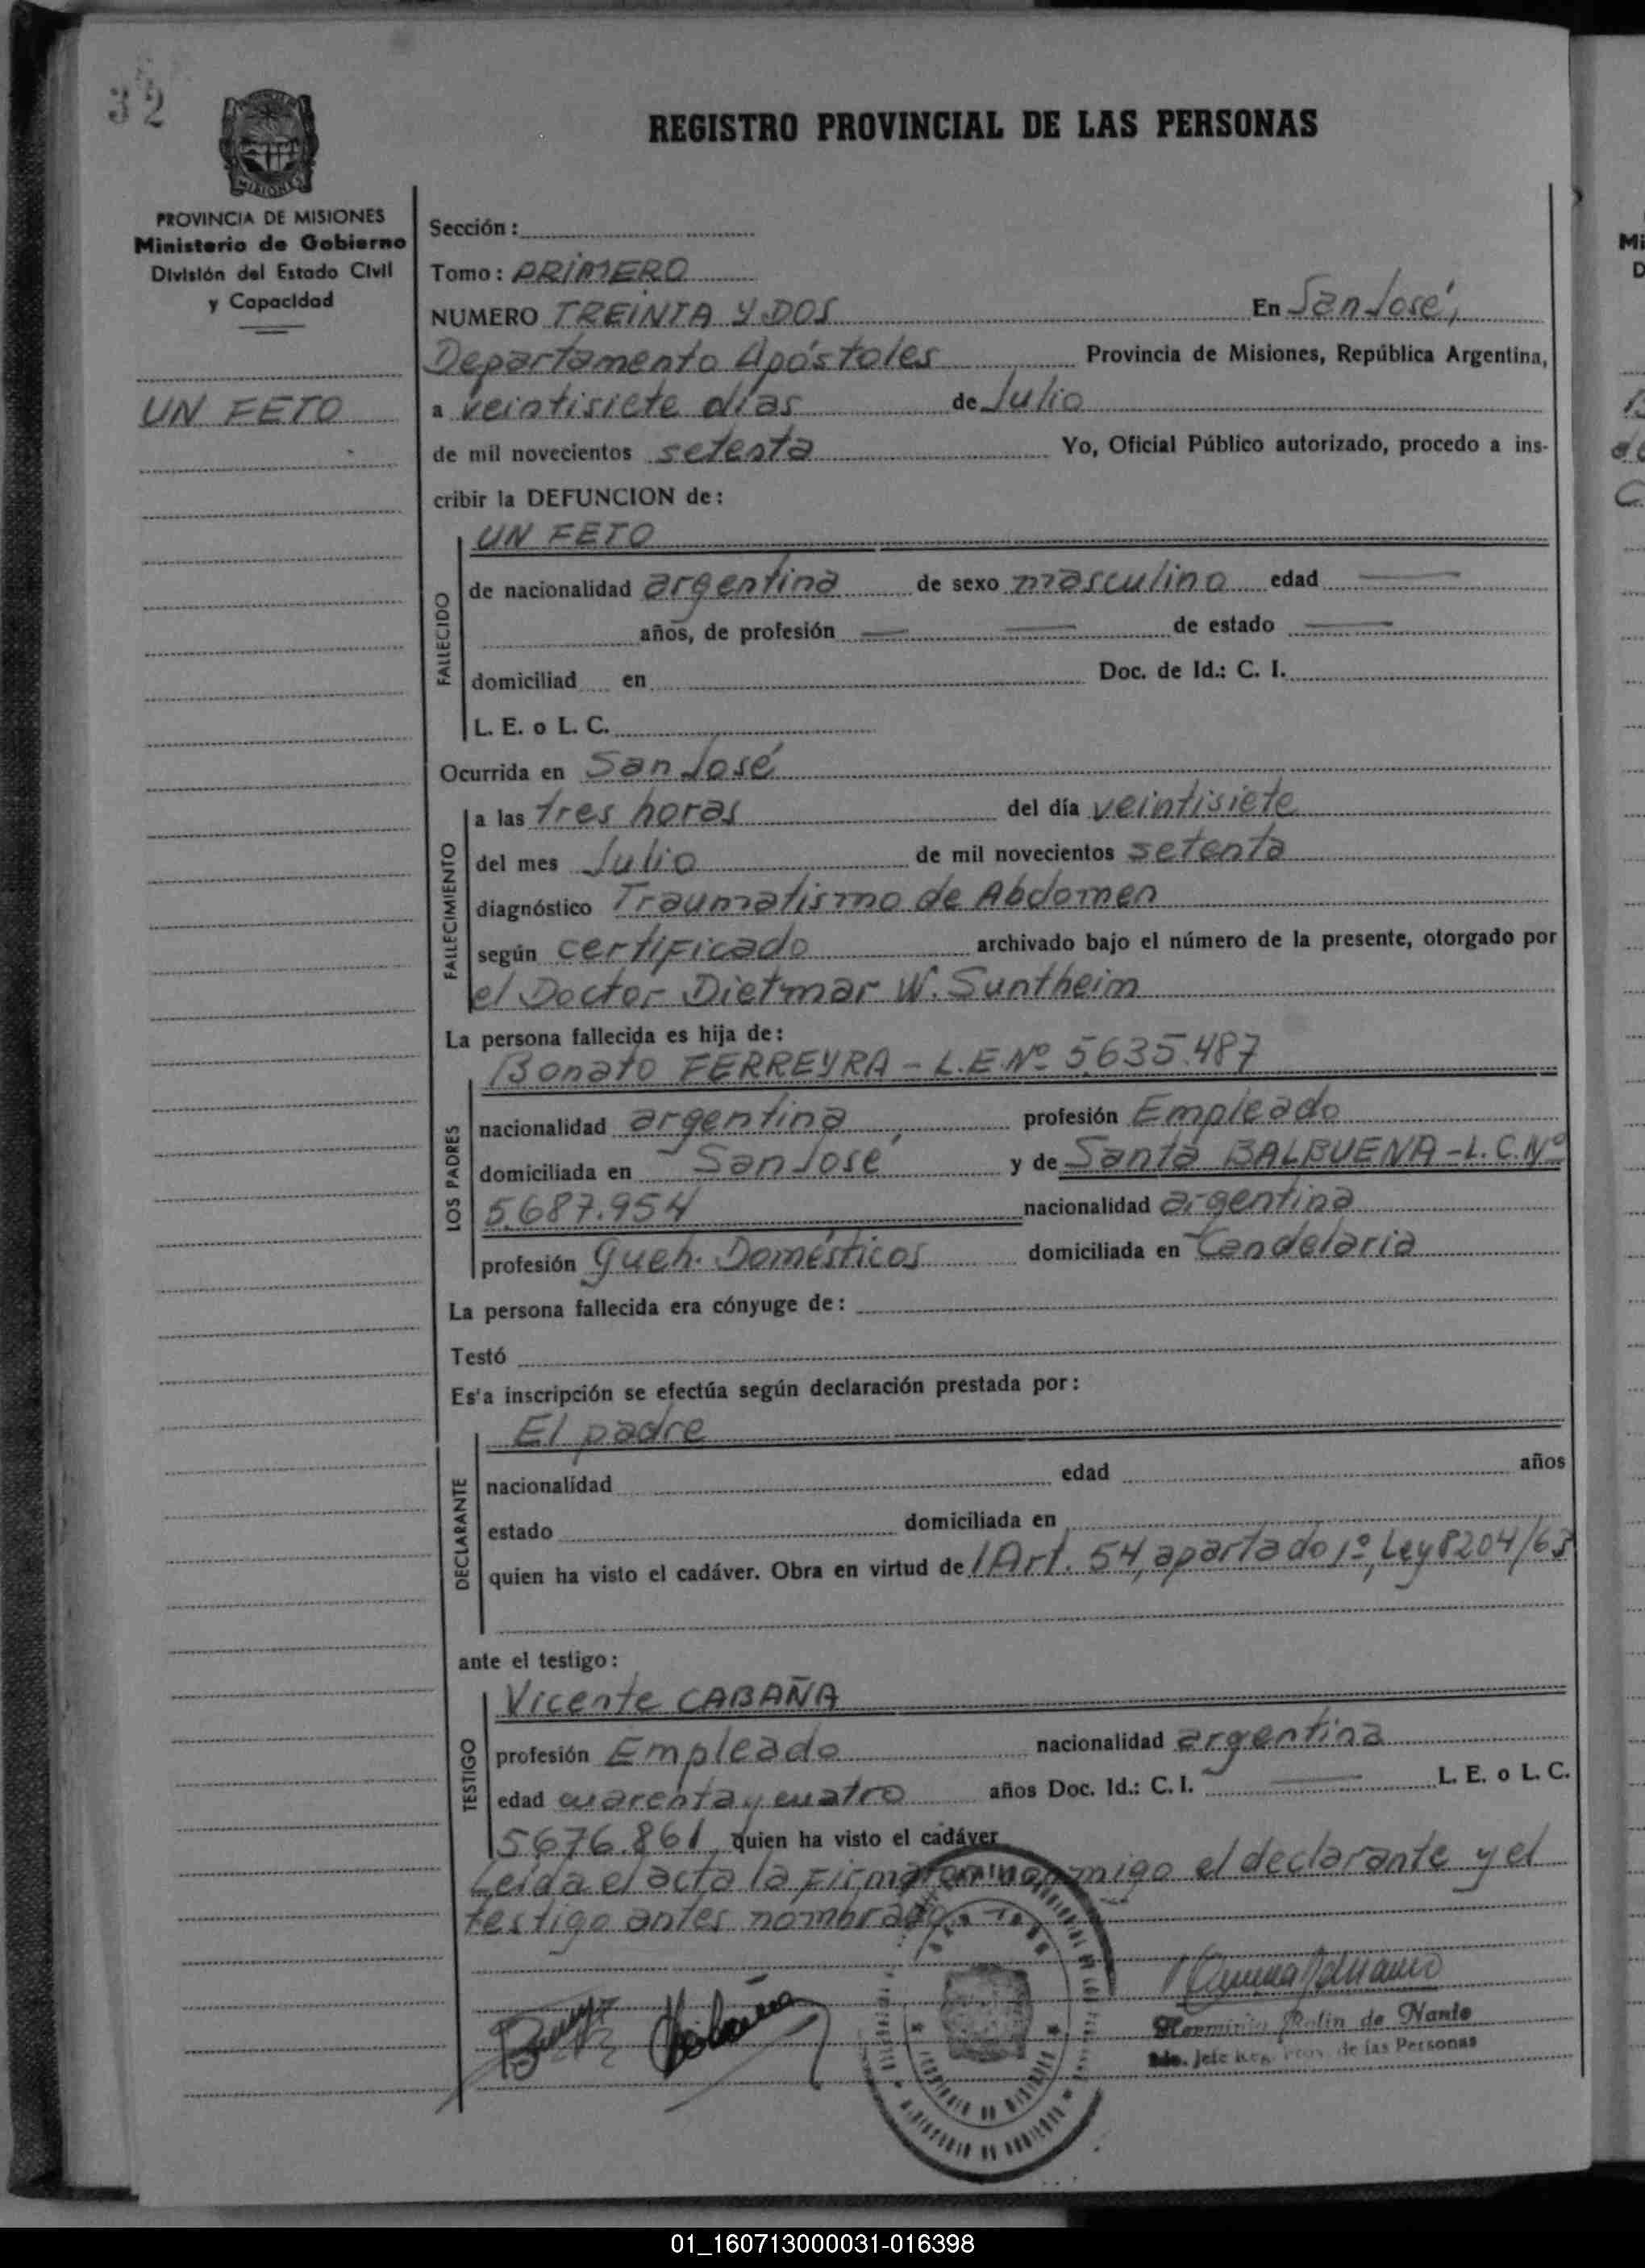 32
REGISTRO PROVINCIAL DE LAS PERSONAS
MISIONES
PROVINCIA DE MISIONES
Ministerio de Gobierno
División del Estado Civil
y Capacidad
UN FETO
Sección:
Tomo: PRIMERO
NUMERO TREINTA Y DOS En San José,
Departamento Apóstoles Provincia de Misiones, República Argentina,
a veintisiete días de Julio
de mil novecientos setenta Yo, Oficial Público autorizado, procedo a ins-
cribir la DEFUNCION de:
UN FETO
FALLECIDO
de nacionalidad argentina de sexo masculino edad —
años, de profesión — — de estado —
domiciliad en Doc. de Id.: C. I.
L. E. o L. C.
Ocurrida en San José
FALLECIMIENTO
a las tres horas del día veintisiete
del mes Julio de mil novecientos setenta
diagnóstico Traumatismo de Abdomen
según certificado archivado bajo el número de la presente, otorgado por
el Doctor Dietmar W. Suntheim
La persona fallecida es hija de:
Bonato FERREYRA - L.E.Nº 5.635.487
LOS PADRES
nacionalidad argentina profesión Empleado
domiciliada en San José y de Santa BALBUENA - L.C.Nº
5.687.954 nacionalidad argentina
profesión Queh. Domésticos domiciliada en Candelaria
La persona fallecida era cónyuge de:
Testó
Es'a inscripción se efectúa según declaración prestada por:
El padre
DECLARANTE
nacionalidad edad años
estado domiciliada en
quien ha visto el cadáver. Obra en virtud de Art. 54, apartado 1º, Ley 8204/63
ante el testigo:
Vicente CABAÑA
TESTIGO
profesión Empleado nacionalidad argentina
edad cuarenta y cuatro años Doc. Id.: C. I. — L. E. o L. C.
5676.861 quien ha visto el cadáver
Leída el acta la firmaron conmigo el declarante y el
testigo antes nombrado
Herminia Rolin de Nante
Jefe Reg. Prov. de las Personas
01_160713000031-016398